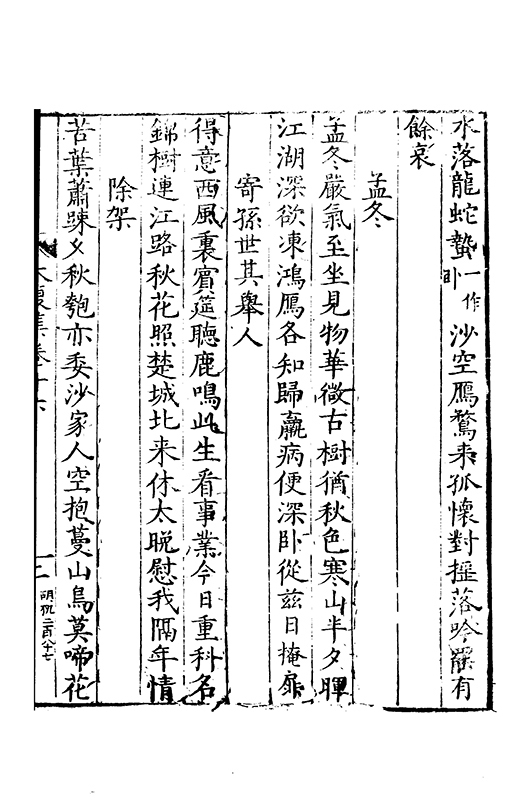 水落龍蛇蟄一作卧沙空鴈鶩来孤懷對揺落吟罷有
餘哀
孟冬
孟冬嚴氣至坐見物華微古樹猶秋色寒山半夕暉
江湖深欲凍鴻鴈各知歸羸病便深卧從兹日掩扉
寄孫世其舉人
得意西風裏賓筵聽鹿鳴此生看事業今日重科名
錦樹連江路秋花照楚城北来休太晚慰我隔年情
除架
苦葉蕭踈夕秋匏亦委沙家人空抱蔓山鳥莫啼花
集卷十六
二